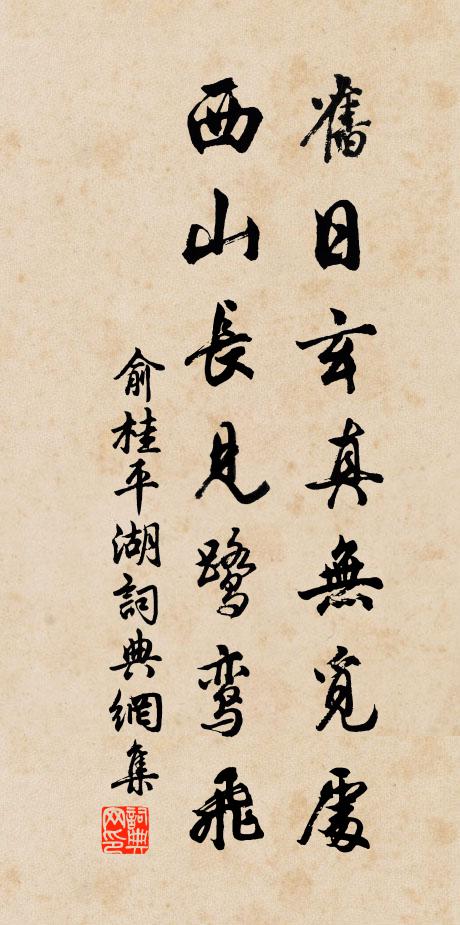 舊日玄真無覓處
西山長見鷺鸞飛
俞桂平湖詞典網集
詞典网印